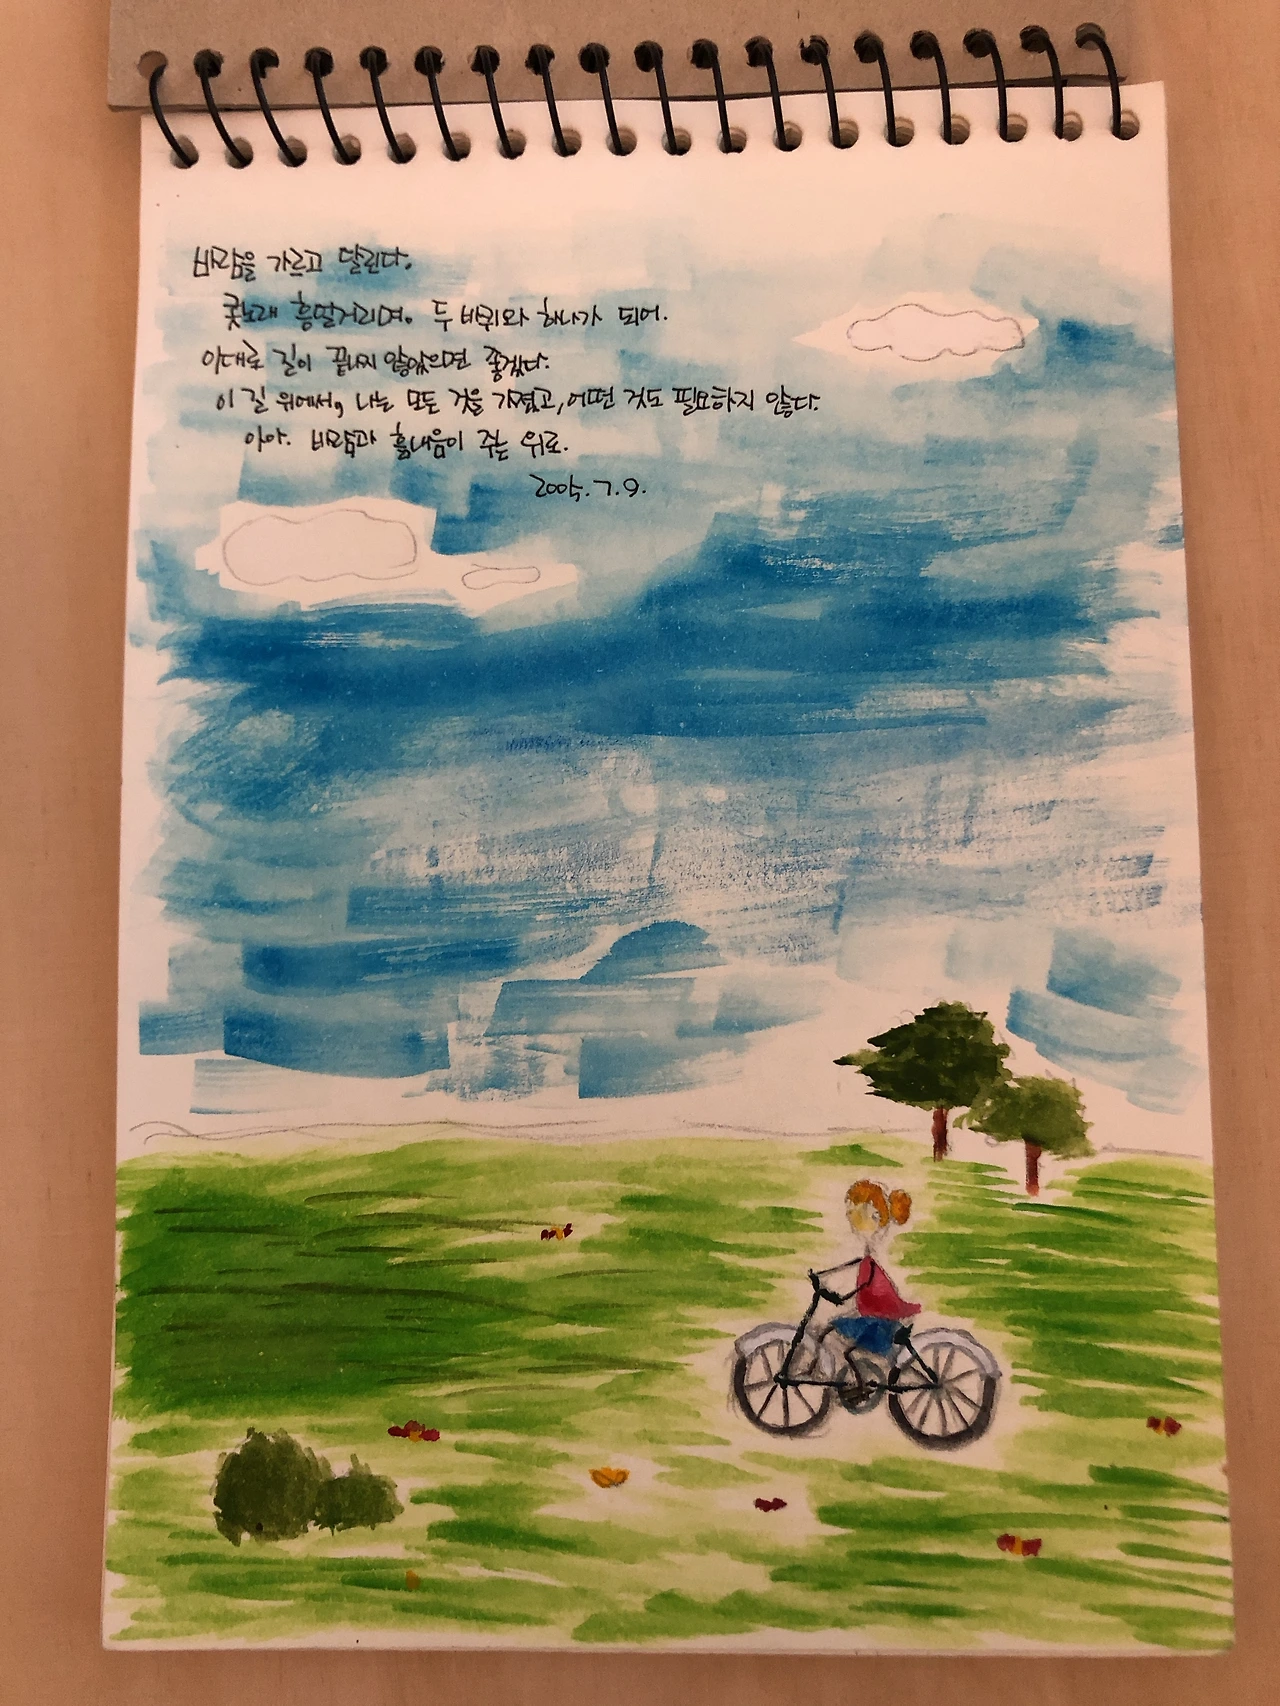 바람을 가르고 달린다.
콧노래 흥얼거리며. 두 바퀴와 하나가 되어.
이대로 길이 끝나지 않았으면 좋겠다.
이 길 위에서, 나는 모든 것을 가졌고, 어떤 것도 필요하지 않다.
아아. 바람과 흙내음이 주는 위로.
2005.7.9.